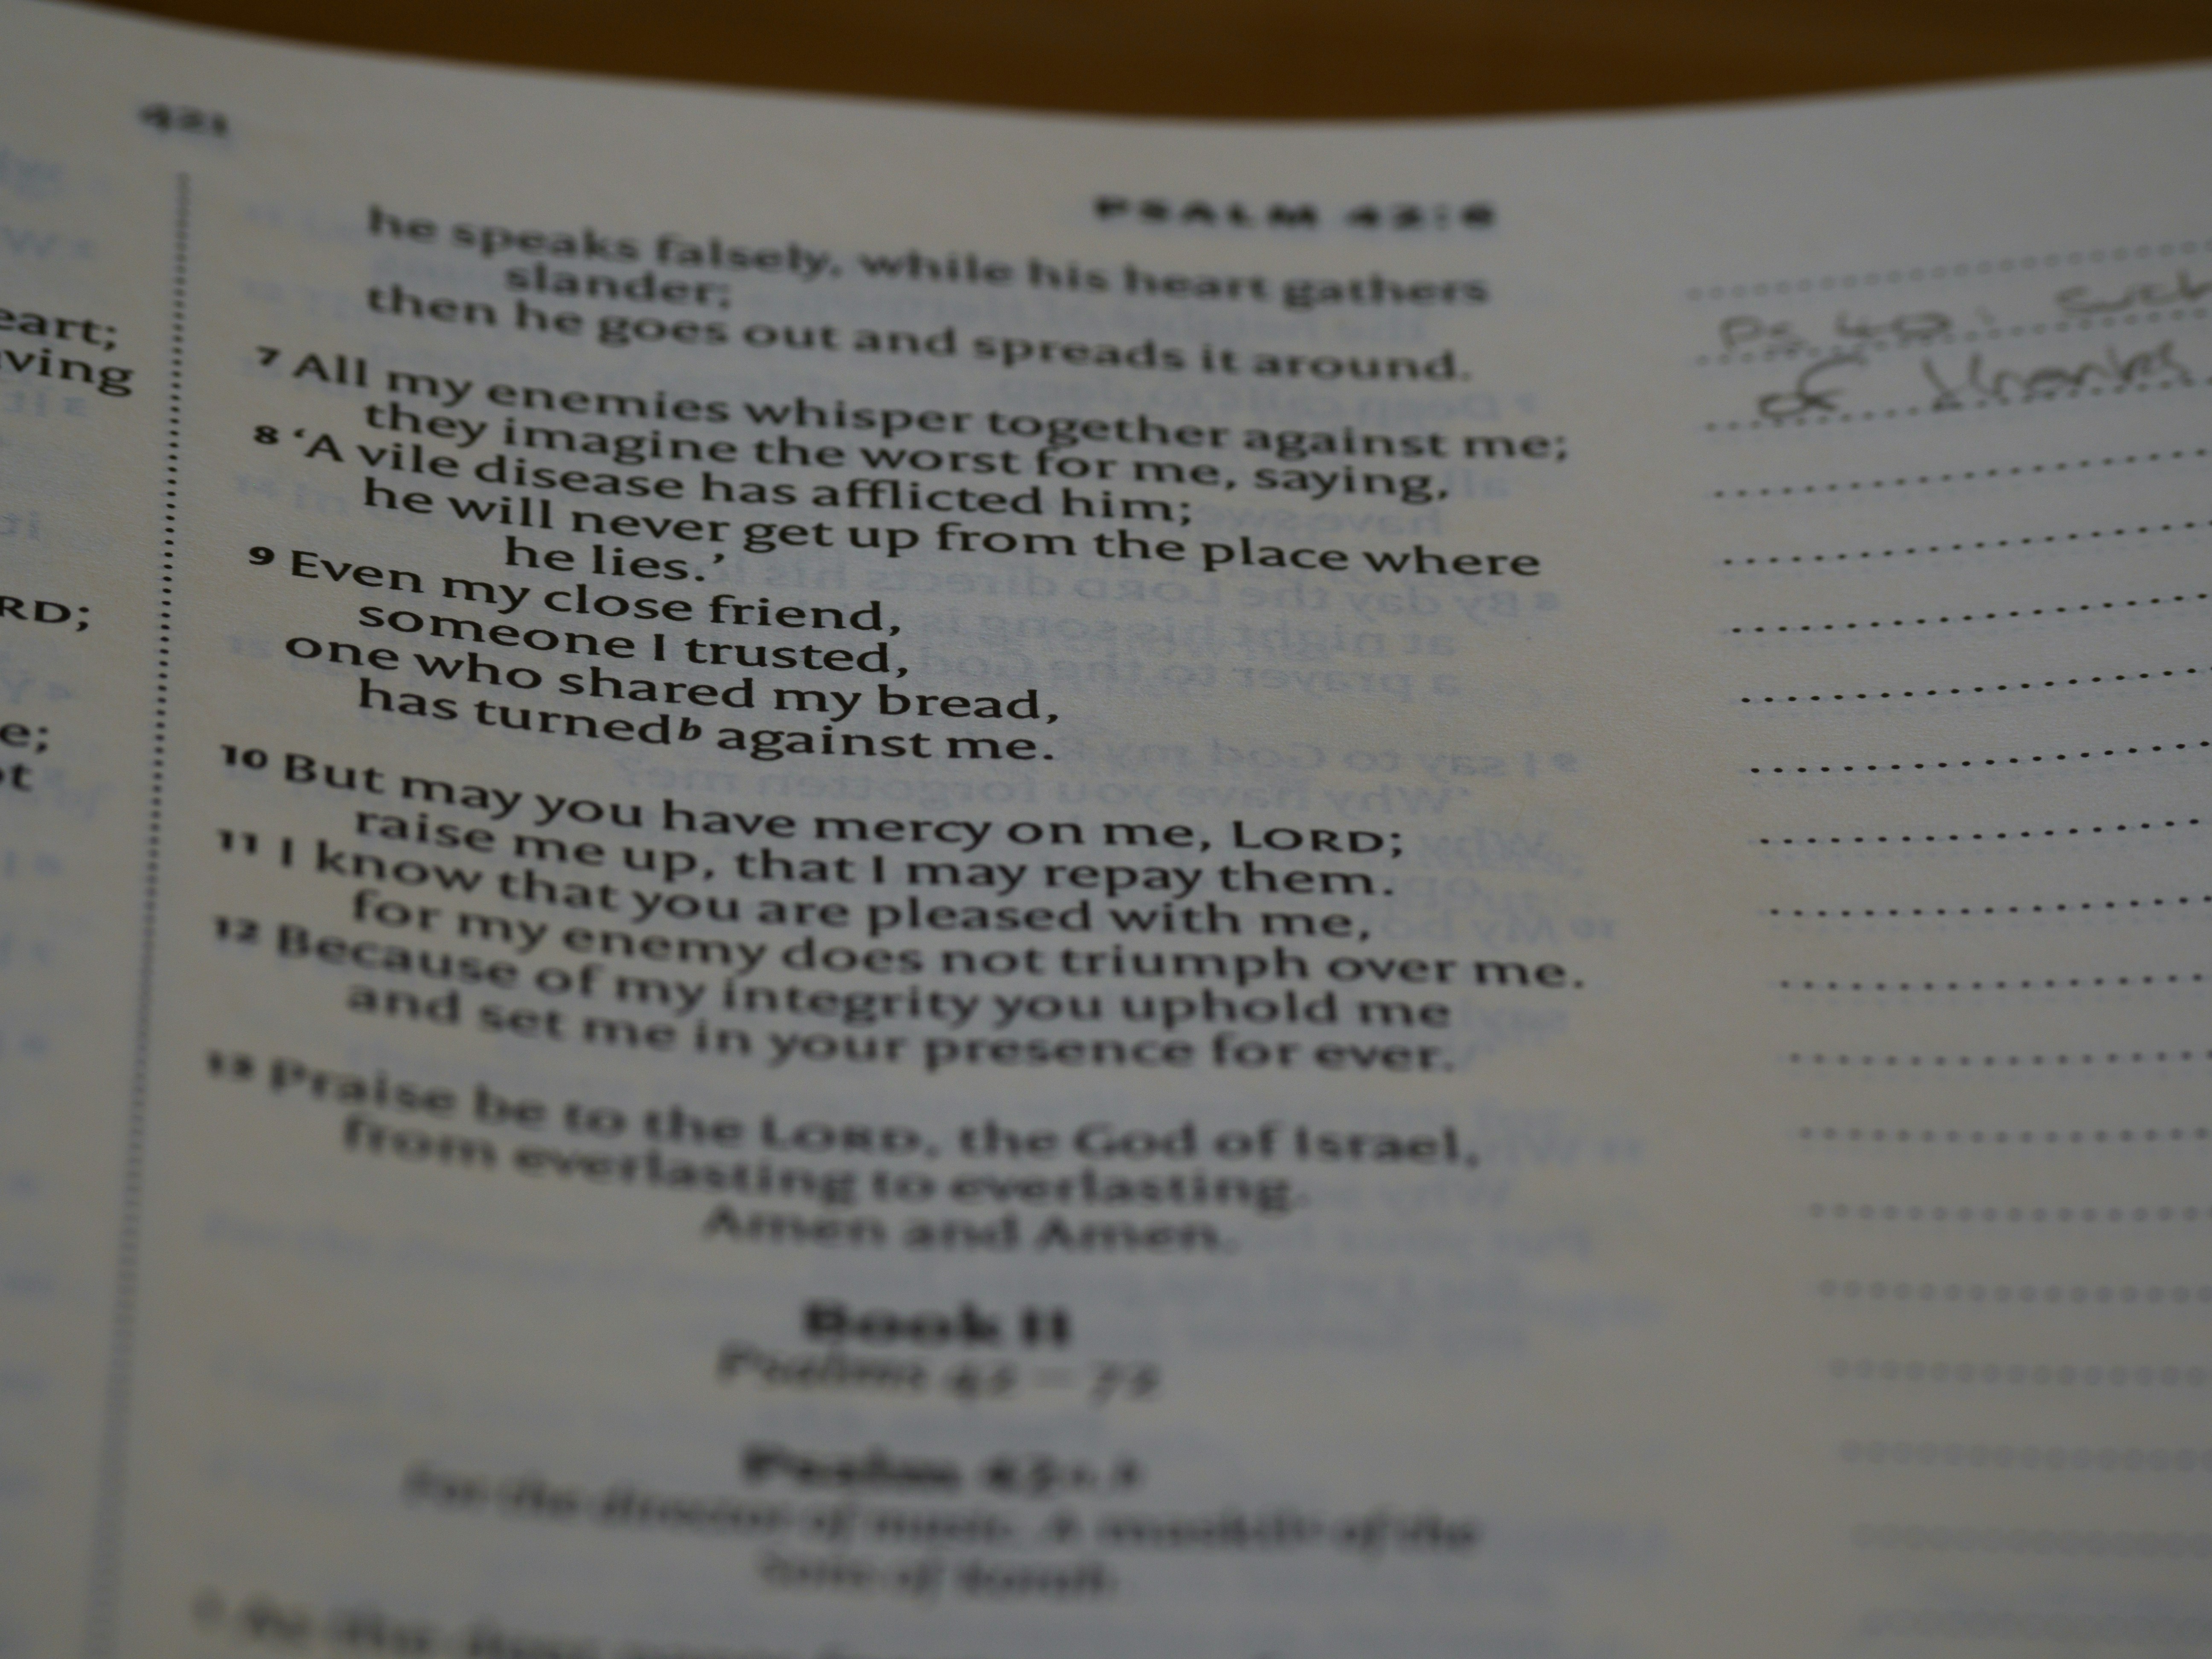 421
PSALM 42:6
eart;
ving
RD;
e;
ot
he speaks falsely, while his heart gathers
slander;
then he goes out and spreads it around.
7 All my enemies whisper together against me;
they imagine the worst for me, saying,
8 ‘A vile disease has afflicted him;
he will never get up from the place where
he lies.’
9 Even my close friend,
someone I trusted,
one who shared my bread,
has turnedb against me.
10 But may you have mercy on me, LORD;
raise me up, that I may repay them.
11 I know that you are pleased with me,
for my enemy does not triumph over me.
12 Because of my integrity you uphold me
and set me in your presence for ever.
13 Praise be to the LORD, the God of Israel,
from everlasting to everlasting.
Amen and Amen.
Book II
Psalms 42 – 72
Psalm 42
For the director of music. A maskil of the
Sons of Korah.
Ps 40: such
of thanks